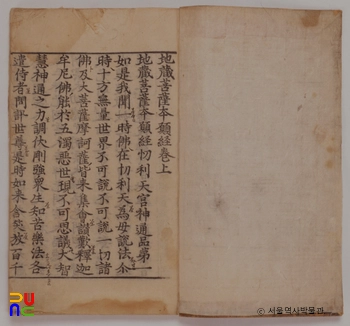 地藏菩薩本願經卷上
地藏菩薩本願經忉利天宮神通品第一
如是我聞一時佛在忉利天爲母說法尒
時十方無量世界不可說不可說一切諸
佛及大菩薩摩訶薩皆來集會讃歎釋迦
牟尼佛能於五濁惡世現不可思議大智
慧神通之力調伏剛强衆生知苦樂法各
遣侍者問訊世尊是時如來含笑放百千
서울역사박물관